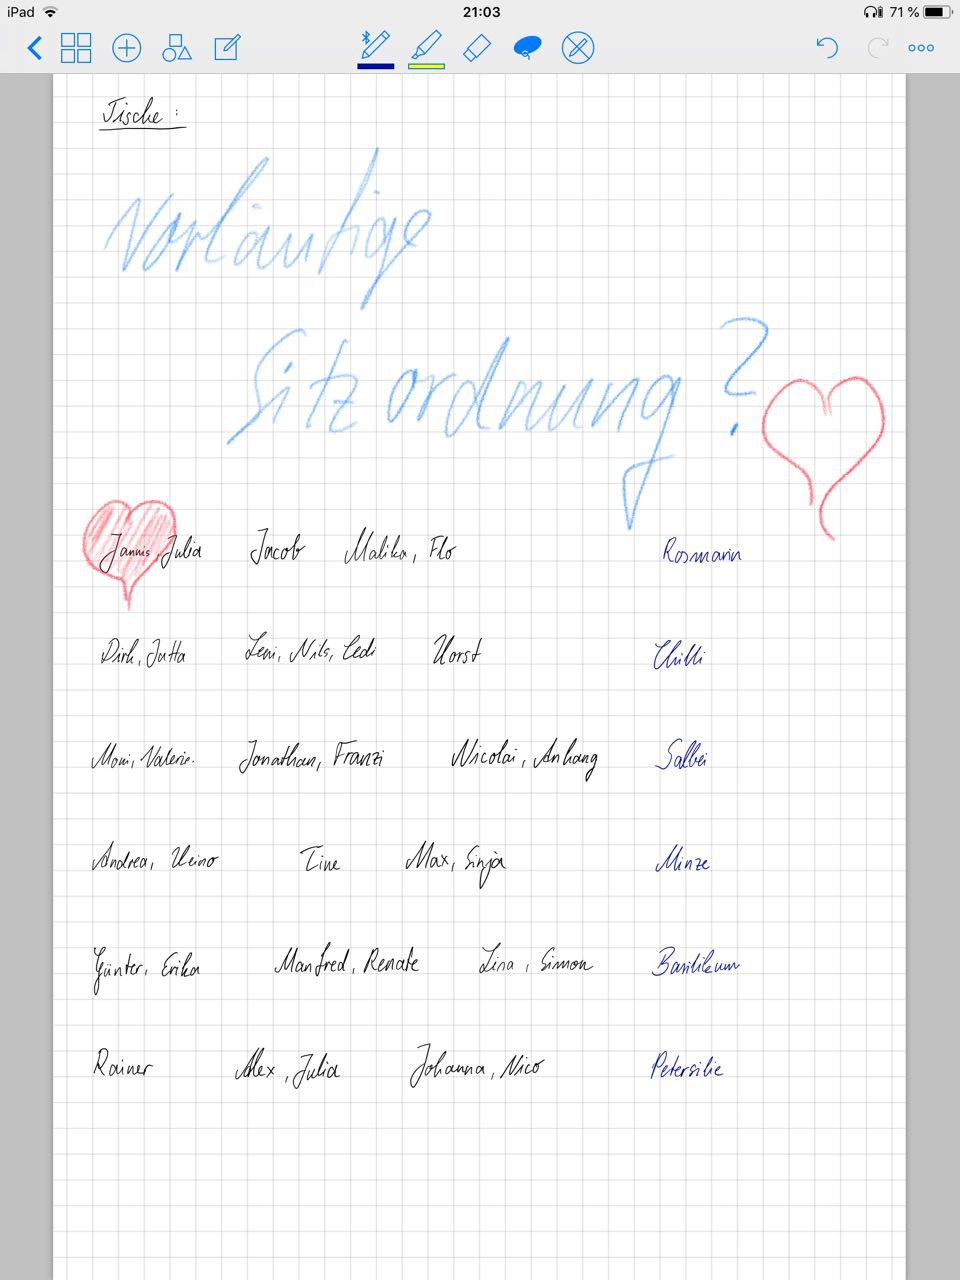 iPad 21:03 71 %
Tische:
Vorläufige
Sitzordnung?
Jannis, Julia Jacob Malika, Flo Rosmarin
Dirk, Jutta Leni, Nils, Ledi Horst Chilli
Moni, Valerie. Jonathan, Franzi Nicolai, Anhang Salbei
Andrea, Heino Tine Max, Sinja Minze
Günter, Erika Manfred, Renate Lina, Simon Basilikum
Rainer Alex, Julia Johanna, Nico Petersilie